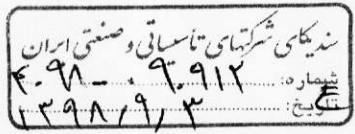 سندیکای شرکتهای تأسیساتی و صنعتی ایران
شماره: ۴۰۹۸ - ۰۹۰۹۱۲
تاریخ: ۱۳۹۸/۹/۳